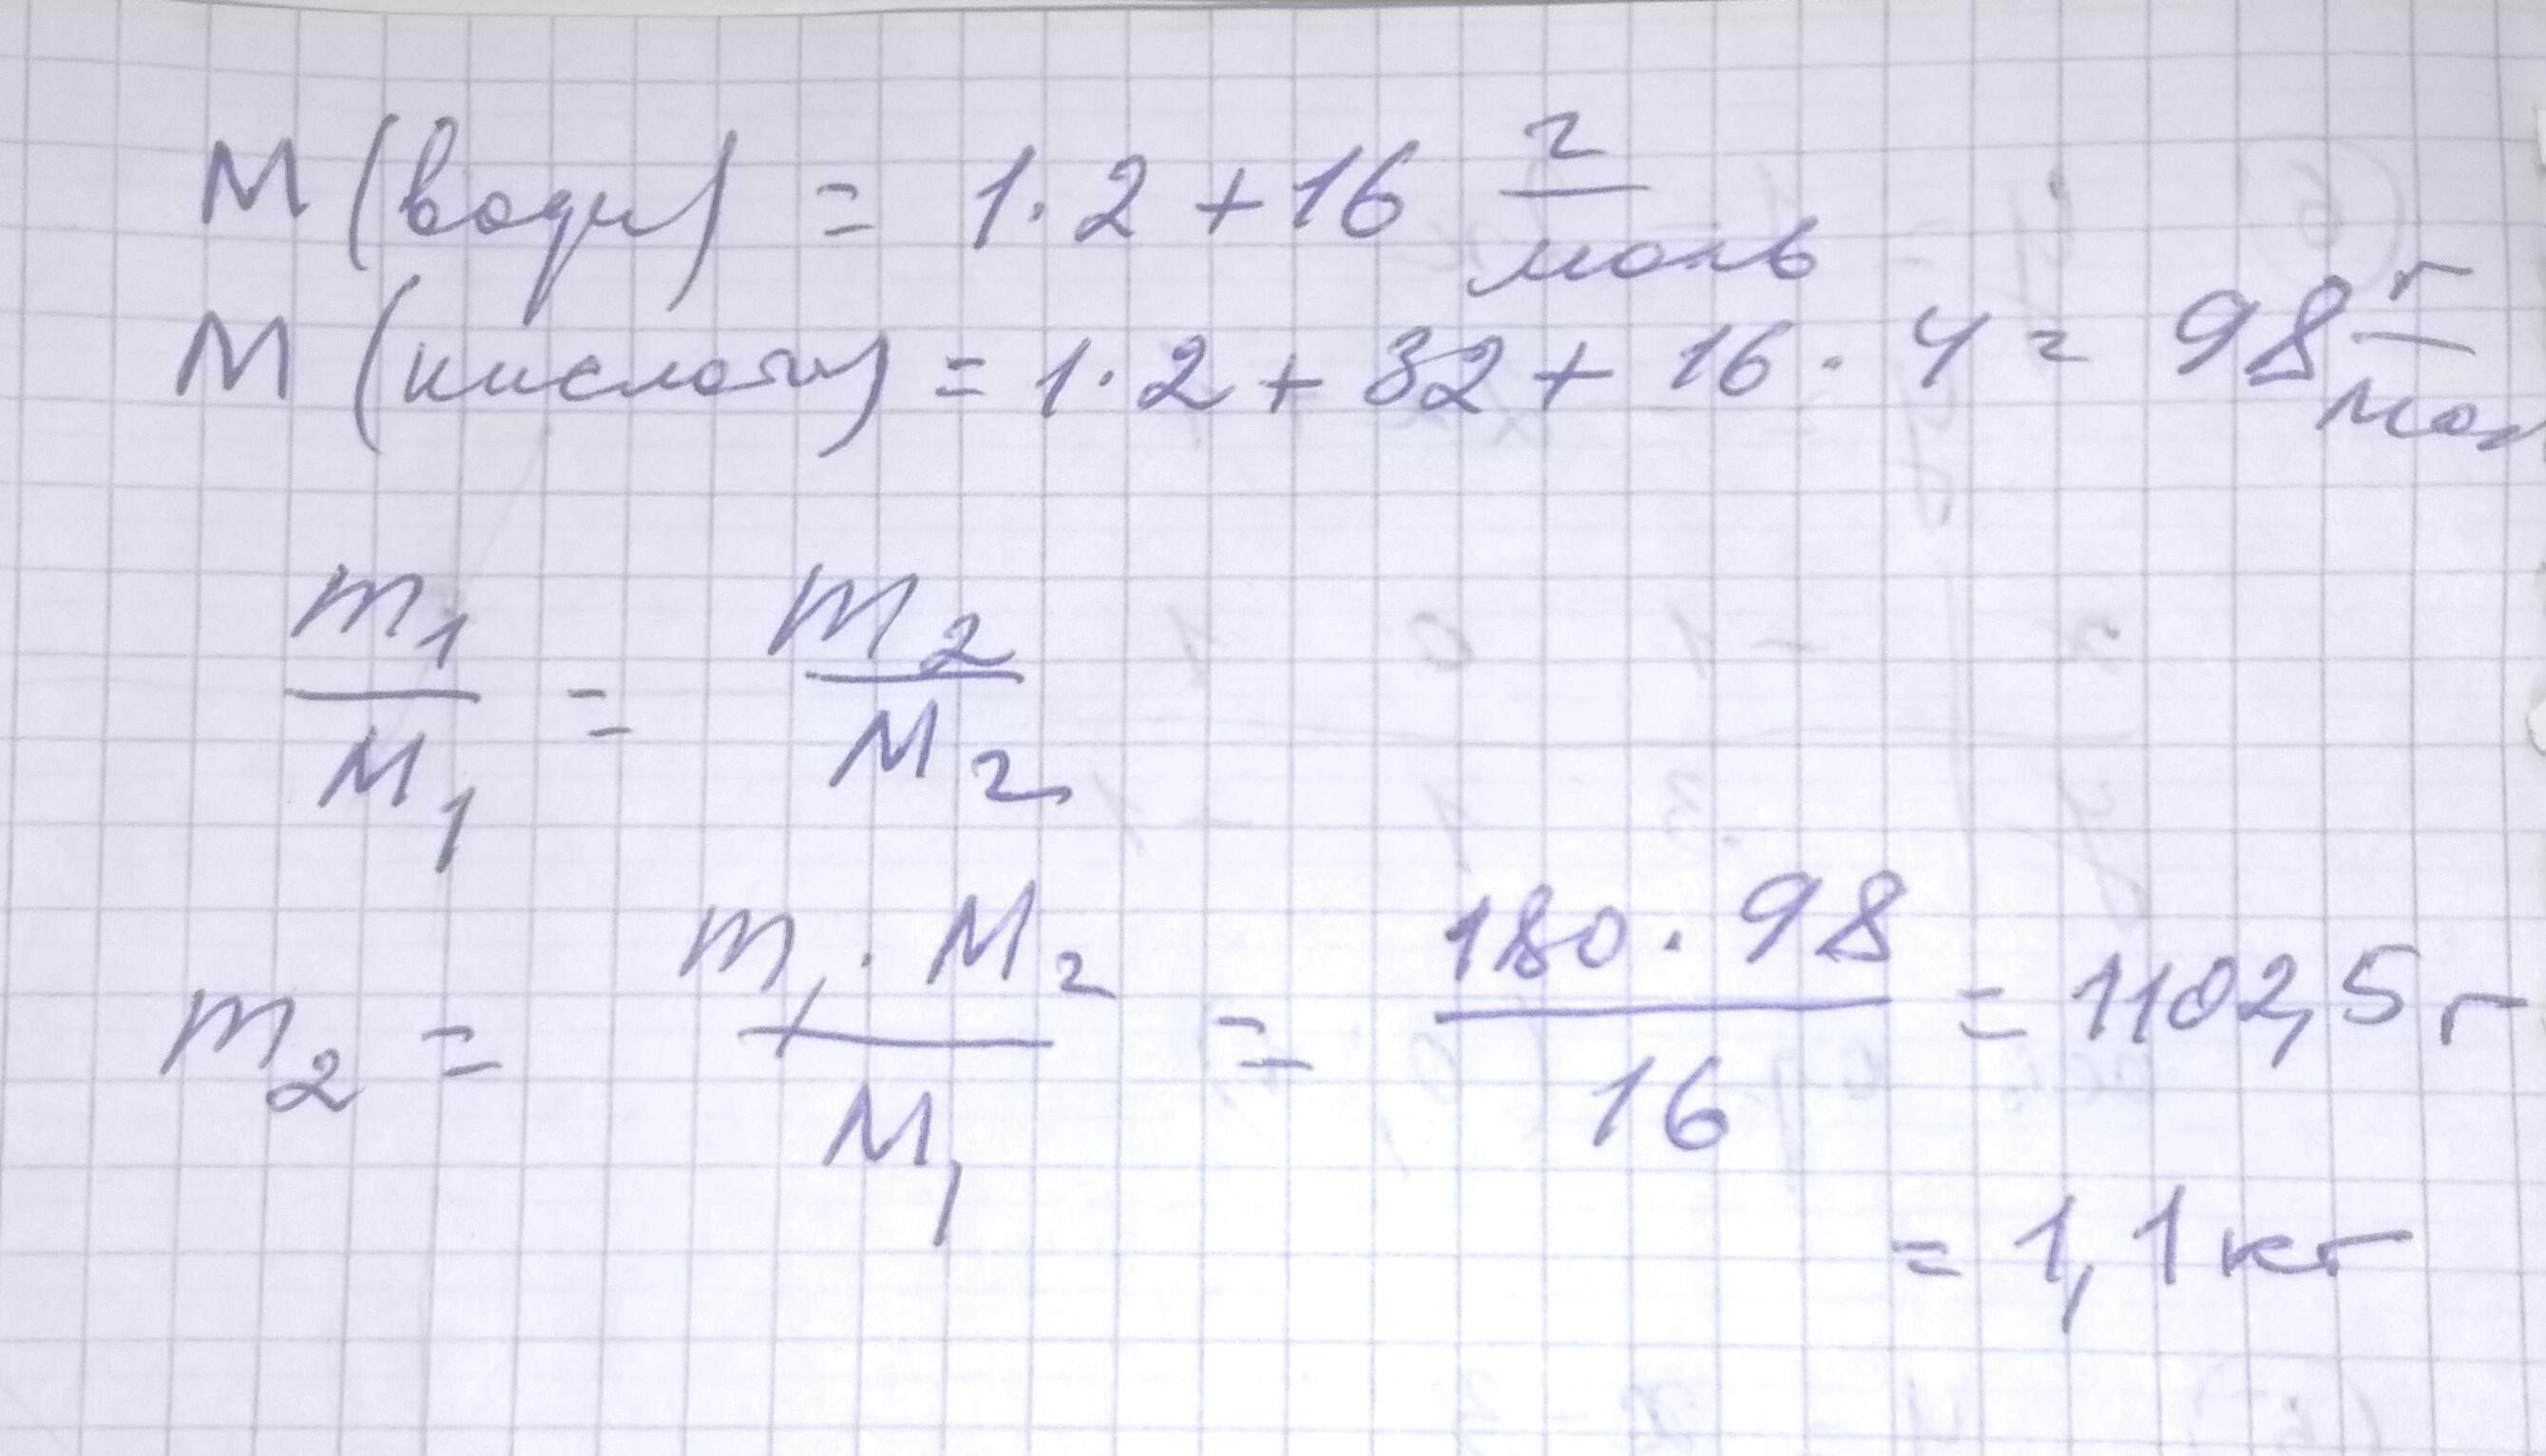 М(воды) = 1·2+16 г/моль
М(кислоты) = 1·2+32+16·4 = 98 г/мол
m₁/M₁ = m₂/M₂
m₂ = m₁·M₂/M₁ = 180·98/16 = 1102,5 г
= 1,1 кг